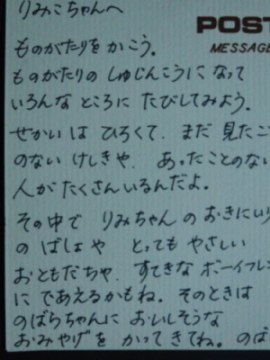 りみこちゃんへ
POST
MESSAGE
ものがたりを かこう。
ものがたりの しゅじんこうに なって
いろんな ところに たびしてみよう。
せかい は ひろくて、まだ 見たこ
のない けしきや、あったことのない
人が たくさん いるんだよ。
その中で りみちゃん の おきにいり
の ばしょ や とっても やさしい
おともだちや、すてきな ボーイフレ
に であえるかもね。そのときは
のばらちゃんに おいしそうな
おみやげを かって きてね。のば